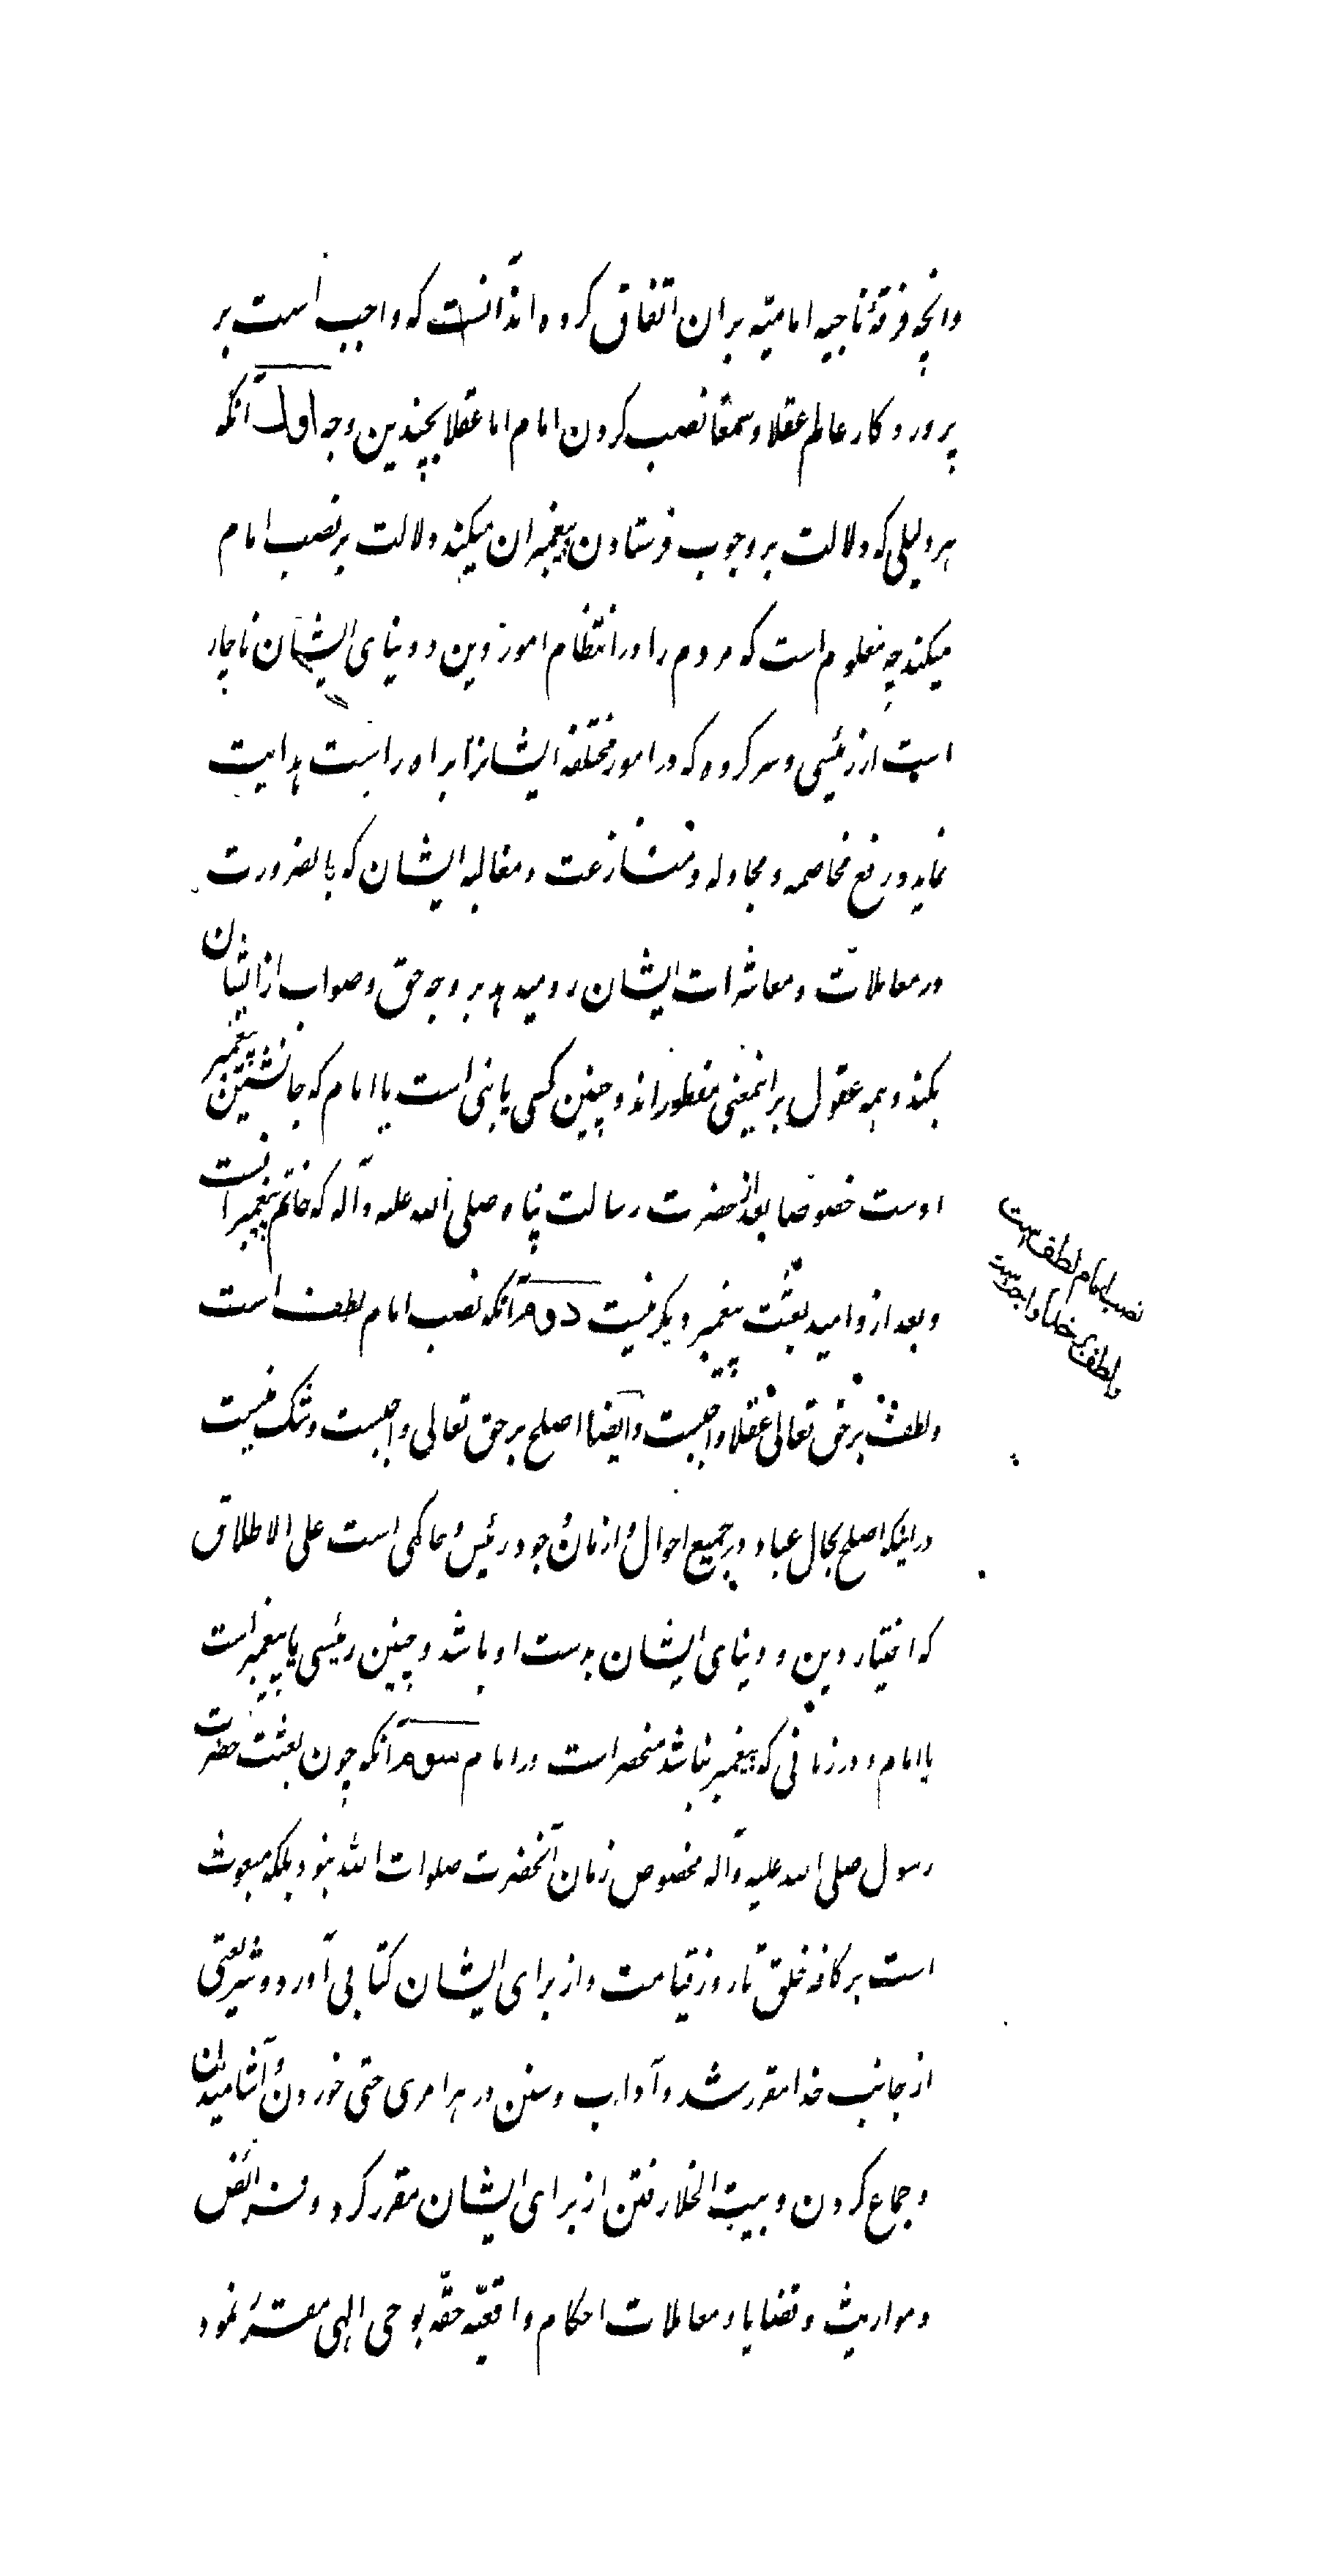 وانچه فرقهٔ ناجیه امامیّه بر ان اتفاق کرده اند آنست که واجب است بر
پروردکار عالم عقلا و سمعًا نصب کردن امام اما عقلا بچندین وجه اول آنکه
هر دلیلی که دلالت بر وجوب فرستادن پیغمبران میکند دلالت بر نصب امام
میکند چه معلوم است که مردم را در انتظام امور دین و دنیای ایشان ناچار
است از رئیسی و سرکرده که در امور مختلفه ایشانرا براه راست هدایت
نماید و رفع مخاصمه و مجادله و منازعت و مغالبه ایشان که بالضرورت
در معاملات و معاشرات ایشان رو میدهد بر وجه حق و صواب از ایشان
بکند و همه عقول بر اینمعنی مفطوراند و چنین کسی یا نبی است یا امام که جانشین پیغمبر
اوست خصوصًا بعد از حضرت رسالت پناه صلی الله علیه وآله که خاتم پیغمبرانست
و بعد از و امید بعثت پیغمبر دیکر نیست دوم آنکه نصب امام لطف است
و لطف بر حق تعالی عقلا واجبست و ایضا اصلح بر حق تعالی واجبست و شک نیست
در اینکه اصلح بحال عباد در جمیع احوال و ازمان وجود رئیس و حاکمی است علی الاطلاق
که اختیار دین و دنیای ایشان بدست او باشد و چنین رئیسی یا پیغمبر است
یا امام و در زمانی که پیغمبر نباشد منحصر است در امام سوم آنکه چون بعثت حضرت
رسول صلی الله علیه وآله مخصوص زمان آنحضرت صلوات الله نبود بلکه مبعوث
است بر کافه خلق تا روز قیامت و از برای ایشان کتابی آورد و شریعتی
از جانب خدا مقرر شد و آداب و سنن در هر امری حتی خوردن و آشامیدن
و جماع کردن و بیت الخلا رفتن از برای ایشان مقرر کرد و فرائض
و مواریث و قضایا و معاملات احکام واقعیّه حقّه بوحی الهی مقرر نمود
نصب امام لطف است
و لطف بر خدا واجبست